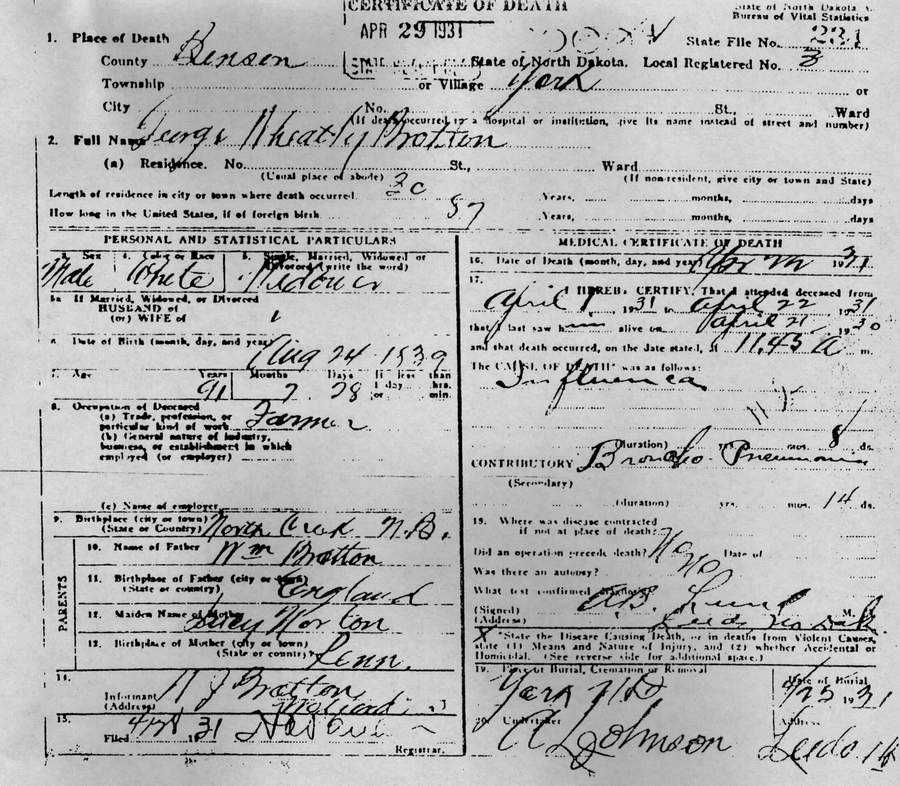 CERTIFICATE OF DEATH
State of North Dakota
Bureau of Vital Statistics
APR 29 1931
State File No. 231
1. Place of Death
County Benson State of North Dakota. Local Registered No. 3
Township or Village York or
City No. St. Ward
(If death occurred in a hospital or institution, give its name instead of street and number)
2. Full Name George Wheatly Bratton
(a) Residence. No. St., Ward
(Usual place of abode) (If non-resident, give city or town and State)
Length of residence in city or town where death occurred 30 Years, months, days
How long in the United States, if of foreign birth 87 Years, months, days
PERSONAL AND STATISTICAL PARTICULARS
3. Sex 4. Color or Race 5. Single, Married, Widowed or Divorced (write the word)
Male White Widower
5a If Married, Widowed, or Divorced
HUSBAND of
(or) WIFE of
6. Date of Birth (month, day, and year) Aug 24 1839
7. Age Years Months Days If less than
91 7 28 1 day hrs.
or min.
8. Occupation of Deceased
(a) Trade, profession, or
particular kind of work Farmer
(b) General nature of industry,
business, or establishment in which
employed (or employer)
(c) Name of employer
9. Birthplace (city or town)
(State or Country) N.B.
PARENTS
10. Name of Father Wm Bratton
11. Birthplace of Father (city or town)
(State or country) England
12. Maiden Name of Mother Norton
13. Birthplace of Mother (city or town)
(State or country) Penn.
14.
Informant Bratton
(Address)
15.
Filed 31
Registrar.
MEDICAL CERTIFICATE OF DEATH
16. Date of Death (month, day, and year) 1931
17.
I HEREBY CERTIFY, That I attended deceased from
April 1 1931 to April 22 1931
that I last saw him alive on April 21 1930
and that death occurred, on the date stated, at 11.45 A m.
The CAUSE OF DEATH* was as follows:
Influenza
(duration) yrs. mos. 8 ds.
CONTRIBUTORY Broncho Pneumonia
(Secondary)
(duration) yrs. mos. 14 ds.
18. Where was disease contracted
if not at place of death?
Did an operation precede death? No Date of
Was there an autopsy? No
What test confirmed diagnosis?
(Signed) A.B. M.D.
(Address) Leeds No Dak
*State the Disease Causing Death, or in deaths from Violent Causes,
state (1) Means and Nature of Injury, and (2) whether Accidental or
Homicidal. (See reverse side for additional space.)
19. Place of Burial, Cremation or Removal Date of Burial
York ND 4/25 1931
20. Undertaker Address
Johnson Leeds